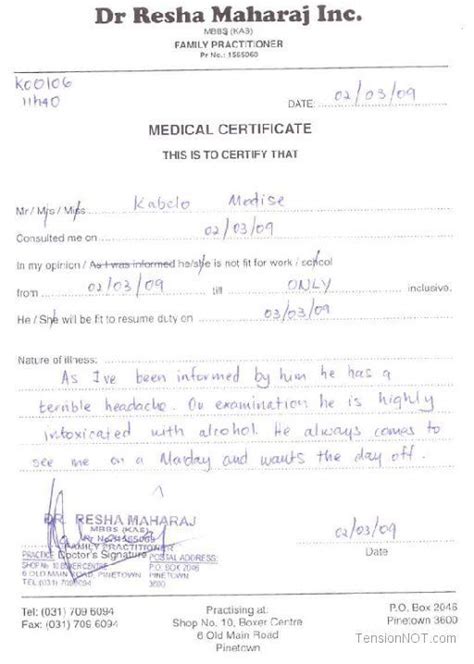 Dr Resha Maharaj Inc.
MBBS (KAS)
FAMILY PRACTITIONER
Pr No.: 1565060
K00106
11h40
DATE: 02/03/09
MEDICAL CERTIFICATE
THIS IS TO CERTIFY THAT
Mr / Mrs / Miss Kabelo Modise
Consulted me on 02/03/09
In my opinion / As I was informed he/she is not fit for work / school
from 02/03/09 till ONLY inclusive.
He / She will be fit to resume duty on 03/03/09
Nature of illness:
As I've been informed by him he has a
terrible headache. On examination he is highly
intoxicated with alcohol. He always comes to
see me on a Monday and wants the day off.
DR. RESHA MAHARAJ
MBBS (KAS)
Pr No: 1565060
FAMILY PRACTITIONER
PRACTICE POSTAL ADDRESS:
Doctor's Signature
SHOP No 10 BOXER CENTRE P.O. BOX 2046
6 OLD MAIN ROAD, PINETOWN PINETOWN
TEL (031) 7096094 3600
02/03/09
Date
Tel: (031) 709 6094
Fax: (031) 709 6094
Practising at:
Shop No. 10, Boxer Centre
6 Old Main Road
Pinetown
P.O. Box 2046
Pinetown 3600
TensionNOT.com